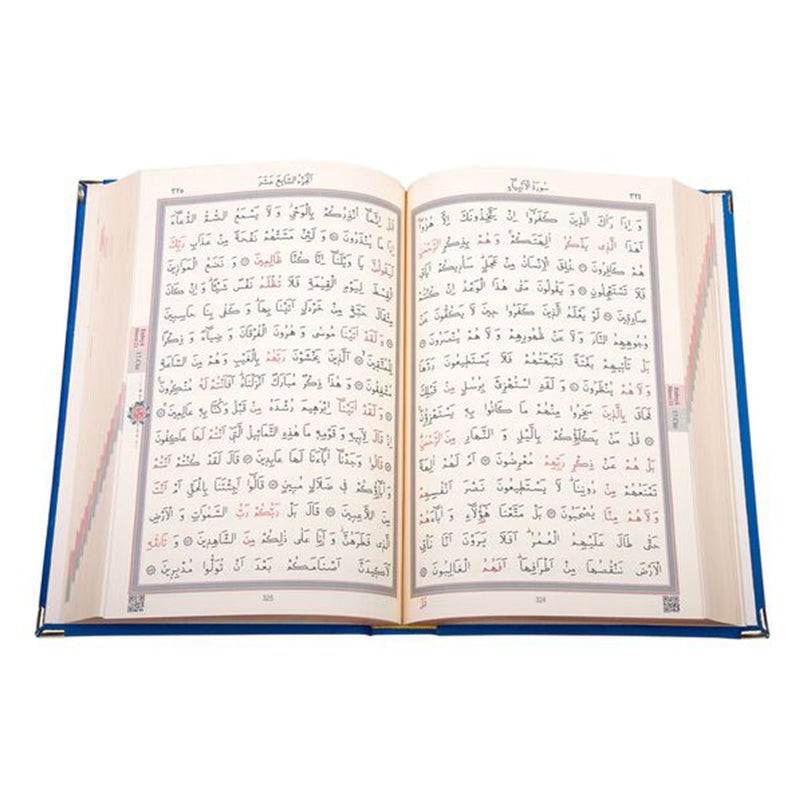 سورة الانبياء
٣٢٤
وَ اِذَا رَاٰكَ الَّذٖينَ كَفَرُٓوا اِنْ يَتَّخِذُونَكَ اِلَّا هُزُوًا
اَهٰذَا الَّذٖى يَذْكُرُ اٰلِهَتَكُمْ وَ هُمْ بِذِكْرِ الرَّحْمٰنِ
هُمْ كَافِرُونَ خُلِقَ الْاِنْسَانُ مِنْ عَجَلٍ سَاُرٖيكُمْ اٰيَاتٖى
فَلَا تَسْتَعْجِلُونِ وَ يَقُولُونَ مَتٰى هٰذَا الْوَعْدُ اِنْ كُنْتُمْ
صَادِقٖينَ لَوْ يَعْلَمُ الَّذٖينَ كَفَرُوا حٖينَ لَا يَكُفُّونَ عَنْ
وُجُوهِهِمُ النَّارَ وَ لَا عَنْ ظُهُورِهِمْ وَ لَا هُمْ يُنْصَرُونَ
بَلْ تَاْتٖيهِمْ بَغْتَةً فَتَبْهَتُهُمْ فَلَا يَسْتَطٖيعُونَ رَدَّهَا
وَ لَا هُمْ يُنْظَرُونَ وَ لَقَدِ اسْتُهْزِئَ بِرُسُلٍ مِنْ قَبْلِكَ
فَحَاقَ بِالَّذٖينَ سَخِرُوا مِنْهُمْ مَا كَانُوا بِهٖ يَسْتَهْزِؤُنَ
قُلْ مَنْ يَكْلَؤُكُمْ بِالَّيْلِ وَ النَّهَارِ مِنَ الرَّحْمٰنِ
بَلْ هُمْ عَنْ ذِكْرِ رَبِّهِمْ مُعْرِضُونَ اَمْ لَهُمْ اٰلِهَةٌ
تَمْنَعُهُمْ مِنْ دُونِنَا لَا يَسْتَطٖيعُونَ نَصْرَ اَنْفُسِهِمْ
وَ لَا هُمْ مِنَّا يُصْحَبُونَ بَلْ مَتَّعْنَا هٰٓؤُلَٓاءِ وَ اٰبَٓاءَهُمْ
حَتّٰى طَالَ عَلَيْهِمُ الْعُمُرُ اَفَلَا يَرَوْنَ اَنَّا نَاْتِى
الْاَرْضَ نَنْقُصُهَا مِنْ اَطْرَافِهَا اَفَهُمُ الْغَالِبُونَ
324
قُلْ
الجزء السابع عشر
٣٢٥
قُلْ اِنَّمَٓا اُنْذِرُكُمْ بِالْوَحْىِ وَ لَا يَسْمَعُ الصُّمُّ الدُّعَٓاءَ
اِذَا مَا يُنْذَرُونَ وَ لَئِنْ مَسَّتْهُمْ نَفْحَةٌ مِنْ عَذَابِ رَبِّكَ
لَيَقُولُنَّ يَا وَيْلَنَٓا اِنَّا كُنَّا ظَالِمٖينَ وَ نَضَعُ الْمَوَازٖينَ
الْقِسْطَ لِيَوْمِ الْقِيٰمَةِ فَلَا تُظْلَمُ نَفْسٌ شَيْئًا وَ اِنْ كَانَ
مِثْقَالَ حَبَّةٍ مِنْ خَرْدَلٍ اَتَيْنَا بِهَا وَ كَفٰى بِنَا حَاسِبٖينَ
وَ لَقَدْ اٰتَيْنَا مُوسٰى وَ هٰرُونَ الْفُرْقَانَ وَ ضِيَٓاءً وَ ذِكْرًا
لِلْمُتَّقٖينَ اَلَّذٖينَ يَخْشَوْنَ رَبَّهُمْ بِالْغَيْبِ وَ هُمْ مِنَ السَّاعَةِ
مُشْفِقُونَ وَ هٰذَا ذِكْرٌ مُبَارَكٌ اَنْزَلْنَاهُ اَفَاَنْتُمْ لَهُ مُنْكِرُونَ
وَ لَقَدْ اٰتَيْنَٓا اِبْرٰهٖيمَ رُشْدَهُ مِنْ قَبْلُ وَ كُنَّا بِهٖ عَالِمٖينَ
اِذْ قَالَ لِاَبٖيهِ وَ قَوْمِهٖ مَا هٰذِهِ التَّمَاثٖيلُ الَّتٖٓى اَنْتُمْ لَهَا عَاكِفُونَ
قَالُوا وَجَدْنَٓا اٰبَٓاءَنَا لَهَا عَابِدٖينَ قَالَ لَقَدْ كُنْتُمْ اَنْتُمْ
وَ اٰبَٓاؤُكُمْ فٖى ضَلَالٍ مُبٖينٍ قَالُٓوا اَجِئْتَنَا بِالْحَقِّ اَمْ اَنْتَ
مِنَ اللَّاعِبٖينَ قَالَ بَلْ رَبُّكُمْ رَبُّ السَّمٰوَاتِ وَ الْاَرْضِ
الَّذٖى فَطَرَهُنَّ وَ اَنَا عَلٰى ذٰلِكُمْ مِنَ الشَّاهِدٖينَ وَ تَاللّٰهِ
لَاَكٖيدَنَّ اَصْنَامَكُمْ بَعْدَ اَنْ تُوَلُّوا مُدْبِرٖينَ
325